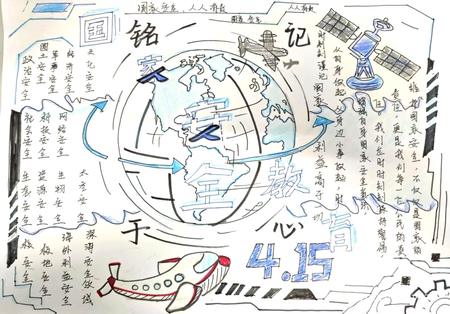 国家安全，人人有责
国家安全 人人有责
国家安全教育
铭记于心
4.15
政治安全
国土安全
军事安全
经济安全
文化安全
社会安全
科技安全
网络安全
生态安全
资源安全
生物安全
太空安全
核安全
极地安全
海外利益安全
深海安全
维护国家安全，不仅仅是国家的
责任，更是我们每一个公民的责
我们应时时刻刻保持警惕
自身国家安全意识
从自身做起，从身边小事做起，时
时刻刻谨记国家利益高于一切